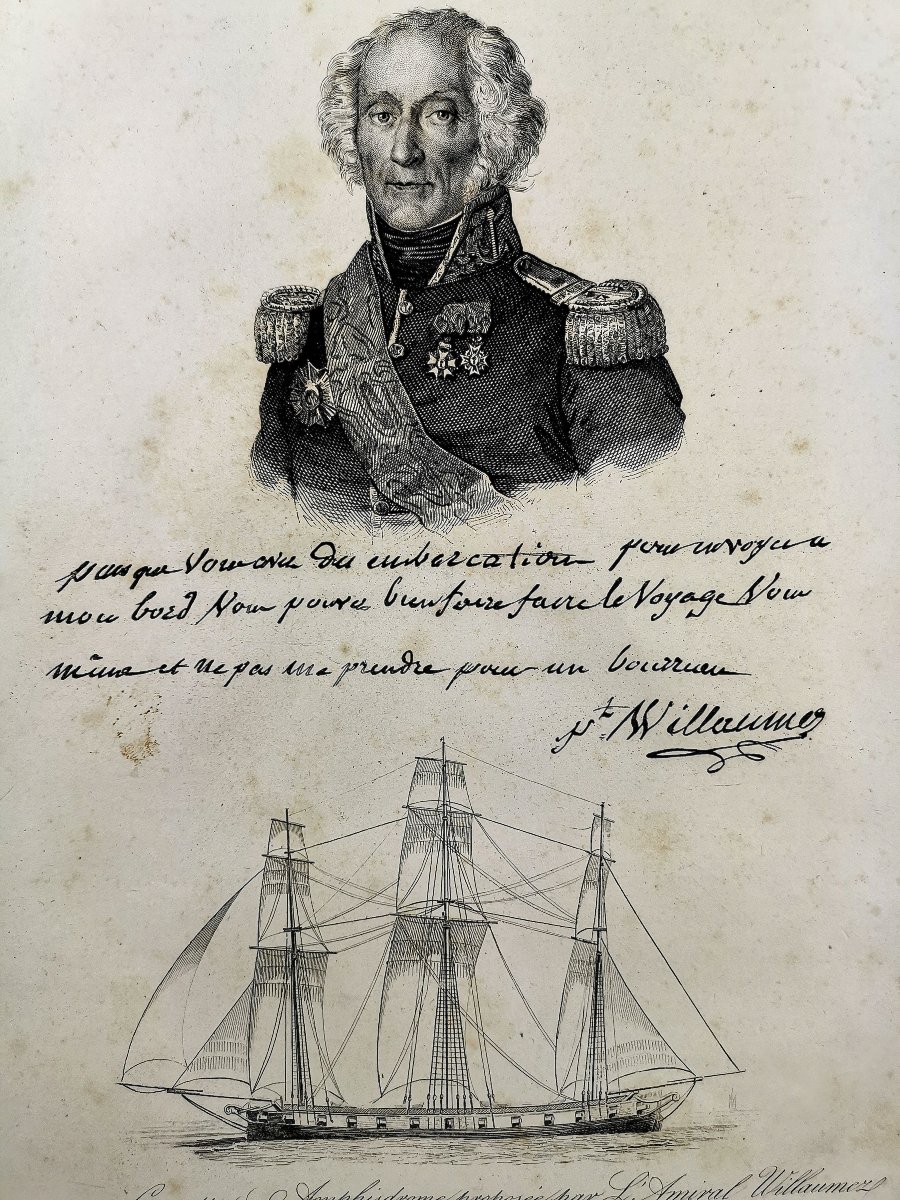 puisque Vous avez Des embarcation pour envoyer a
mon bord Vous pouvez bien faire le Voyage Vous
même et ne pas me prendre pour un bourreau
Willaumez
Amphidrome proposée par L'Amiral Willaumez